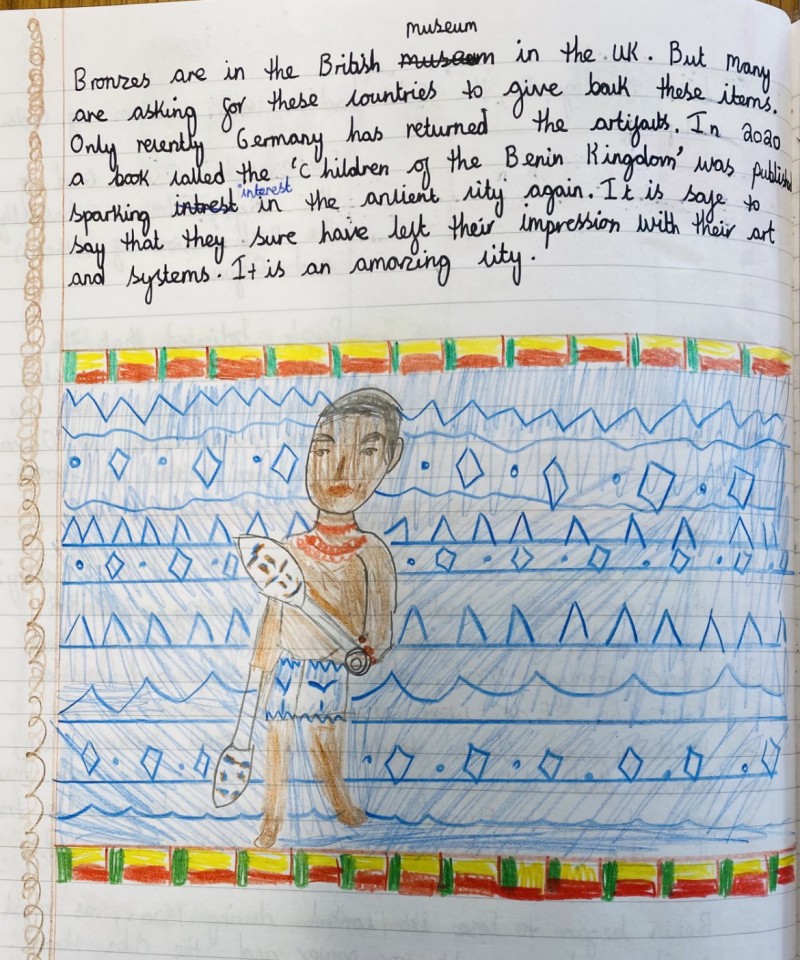 museum
Bronzes are in the British musuem in the UK. But many
are asking for these countries to give back these items.
Only recently Germany has returned the artifacts. In 2020
a book called the 'Children of the Benin Kingdom' was publish
interest
sparking intrest in the ancient city again. It is safe to
say that they sure have left their impression with their art
and systems. It is an amazing city.